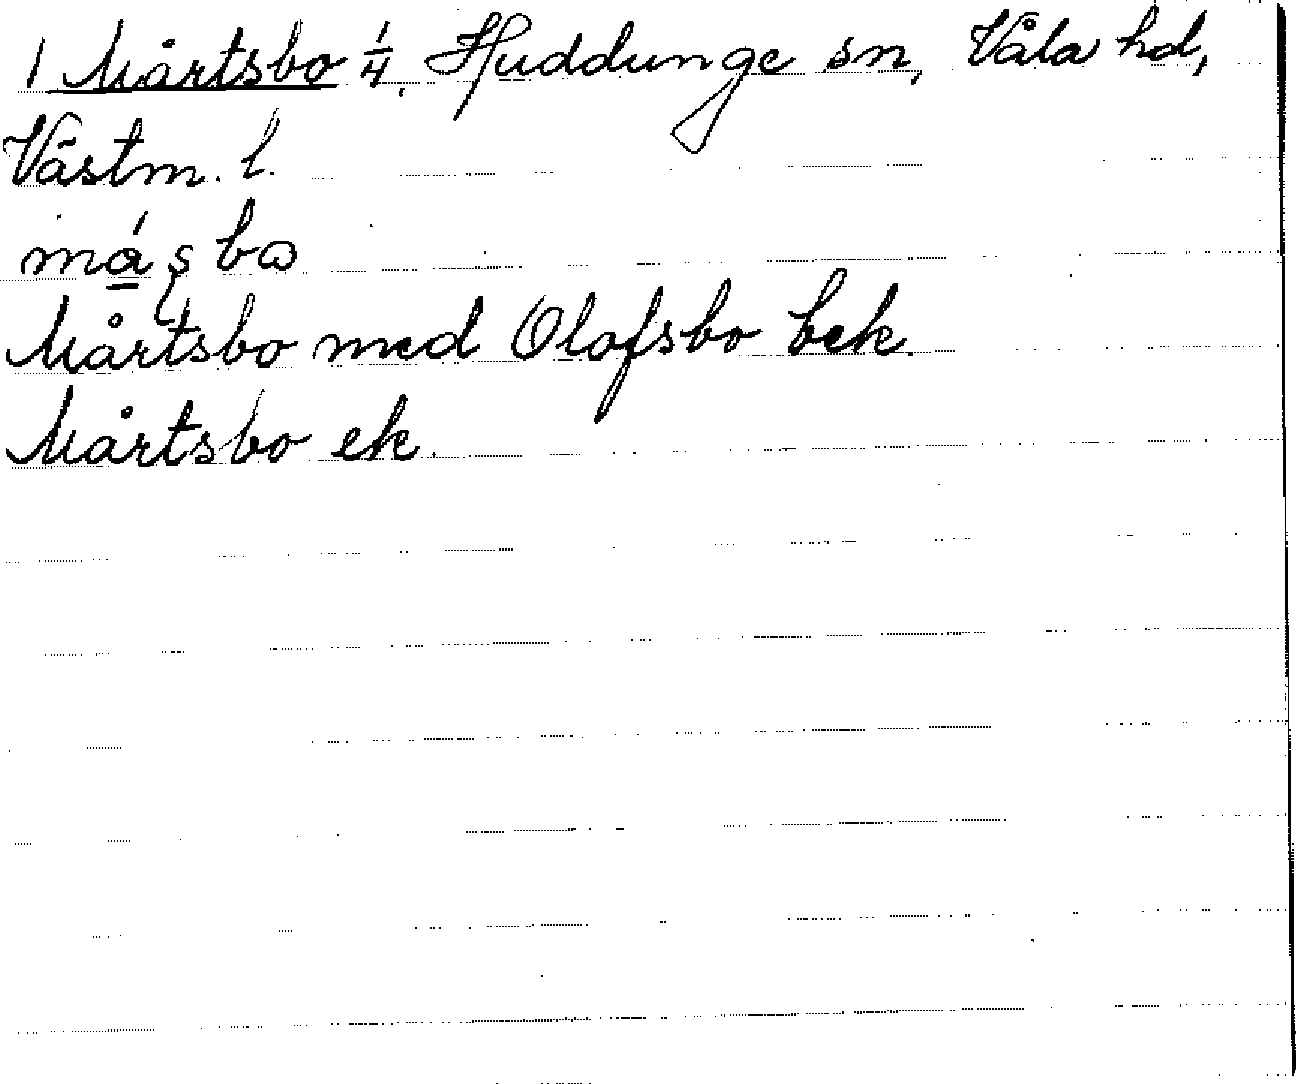 1 Mårtsbo 1/4, Huddunge sn, Våla hd,
Västm. l.
Mårtsbo med Olofsbo bek.
Mårtsbo ek.